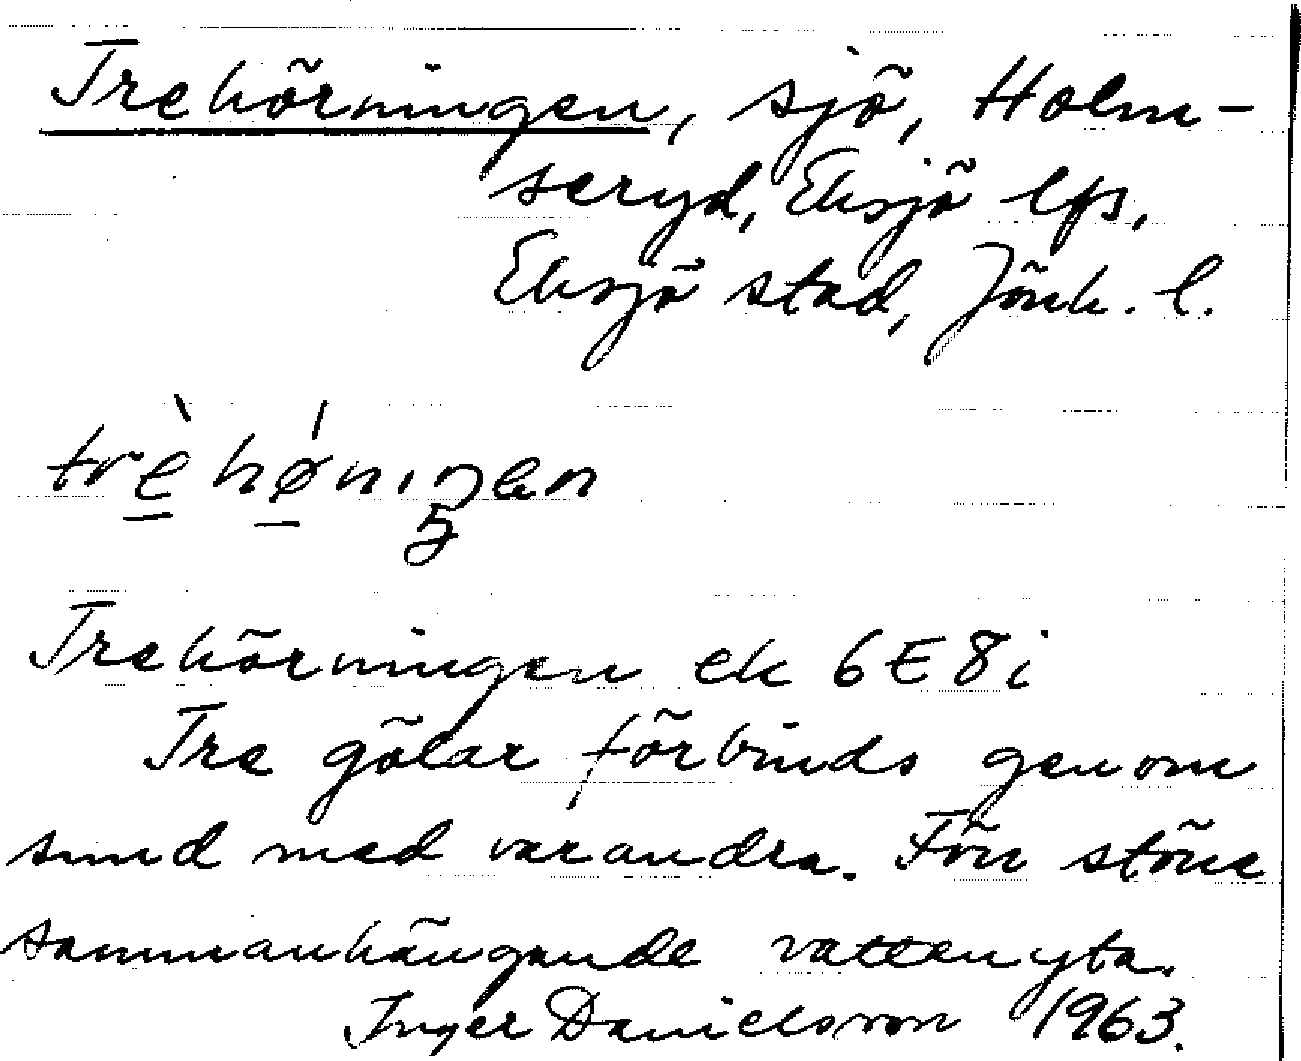 Trehörningen, sjö, Holm-
seryd, Eksjö lfs,
Eksjö stad, Jönk. l.
trè hǿniŋen
Trehörningen ek 6E8i
Tre gölar förbinds genom
sund med varandra. Förr större
sammanhängande vattenyta.
Inger Danielsson 1963.